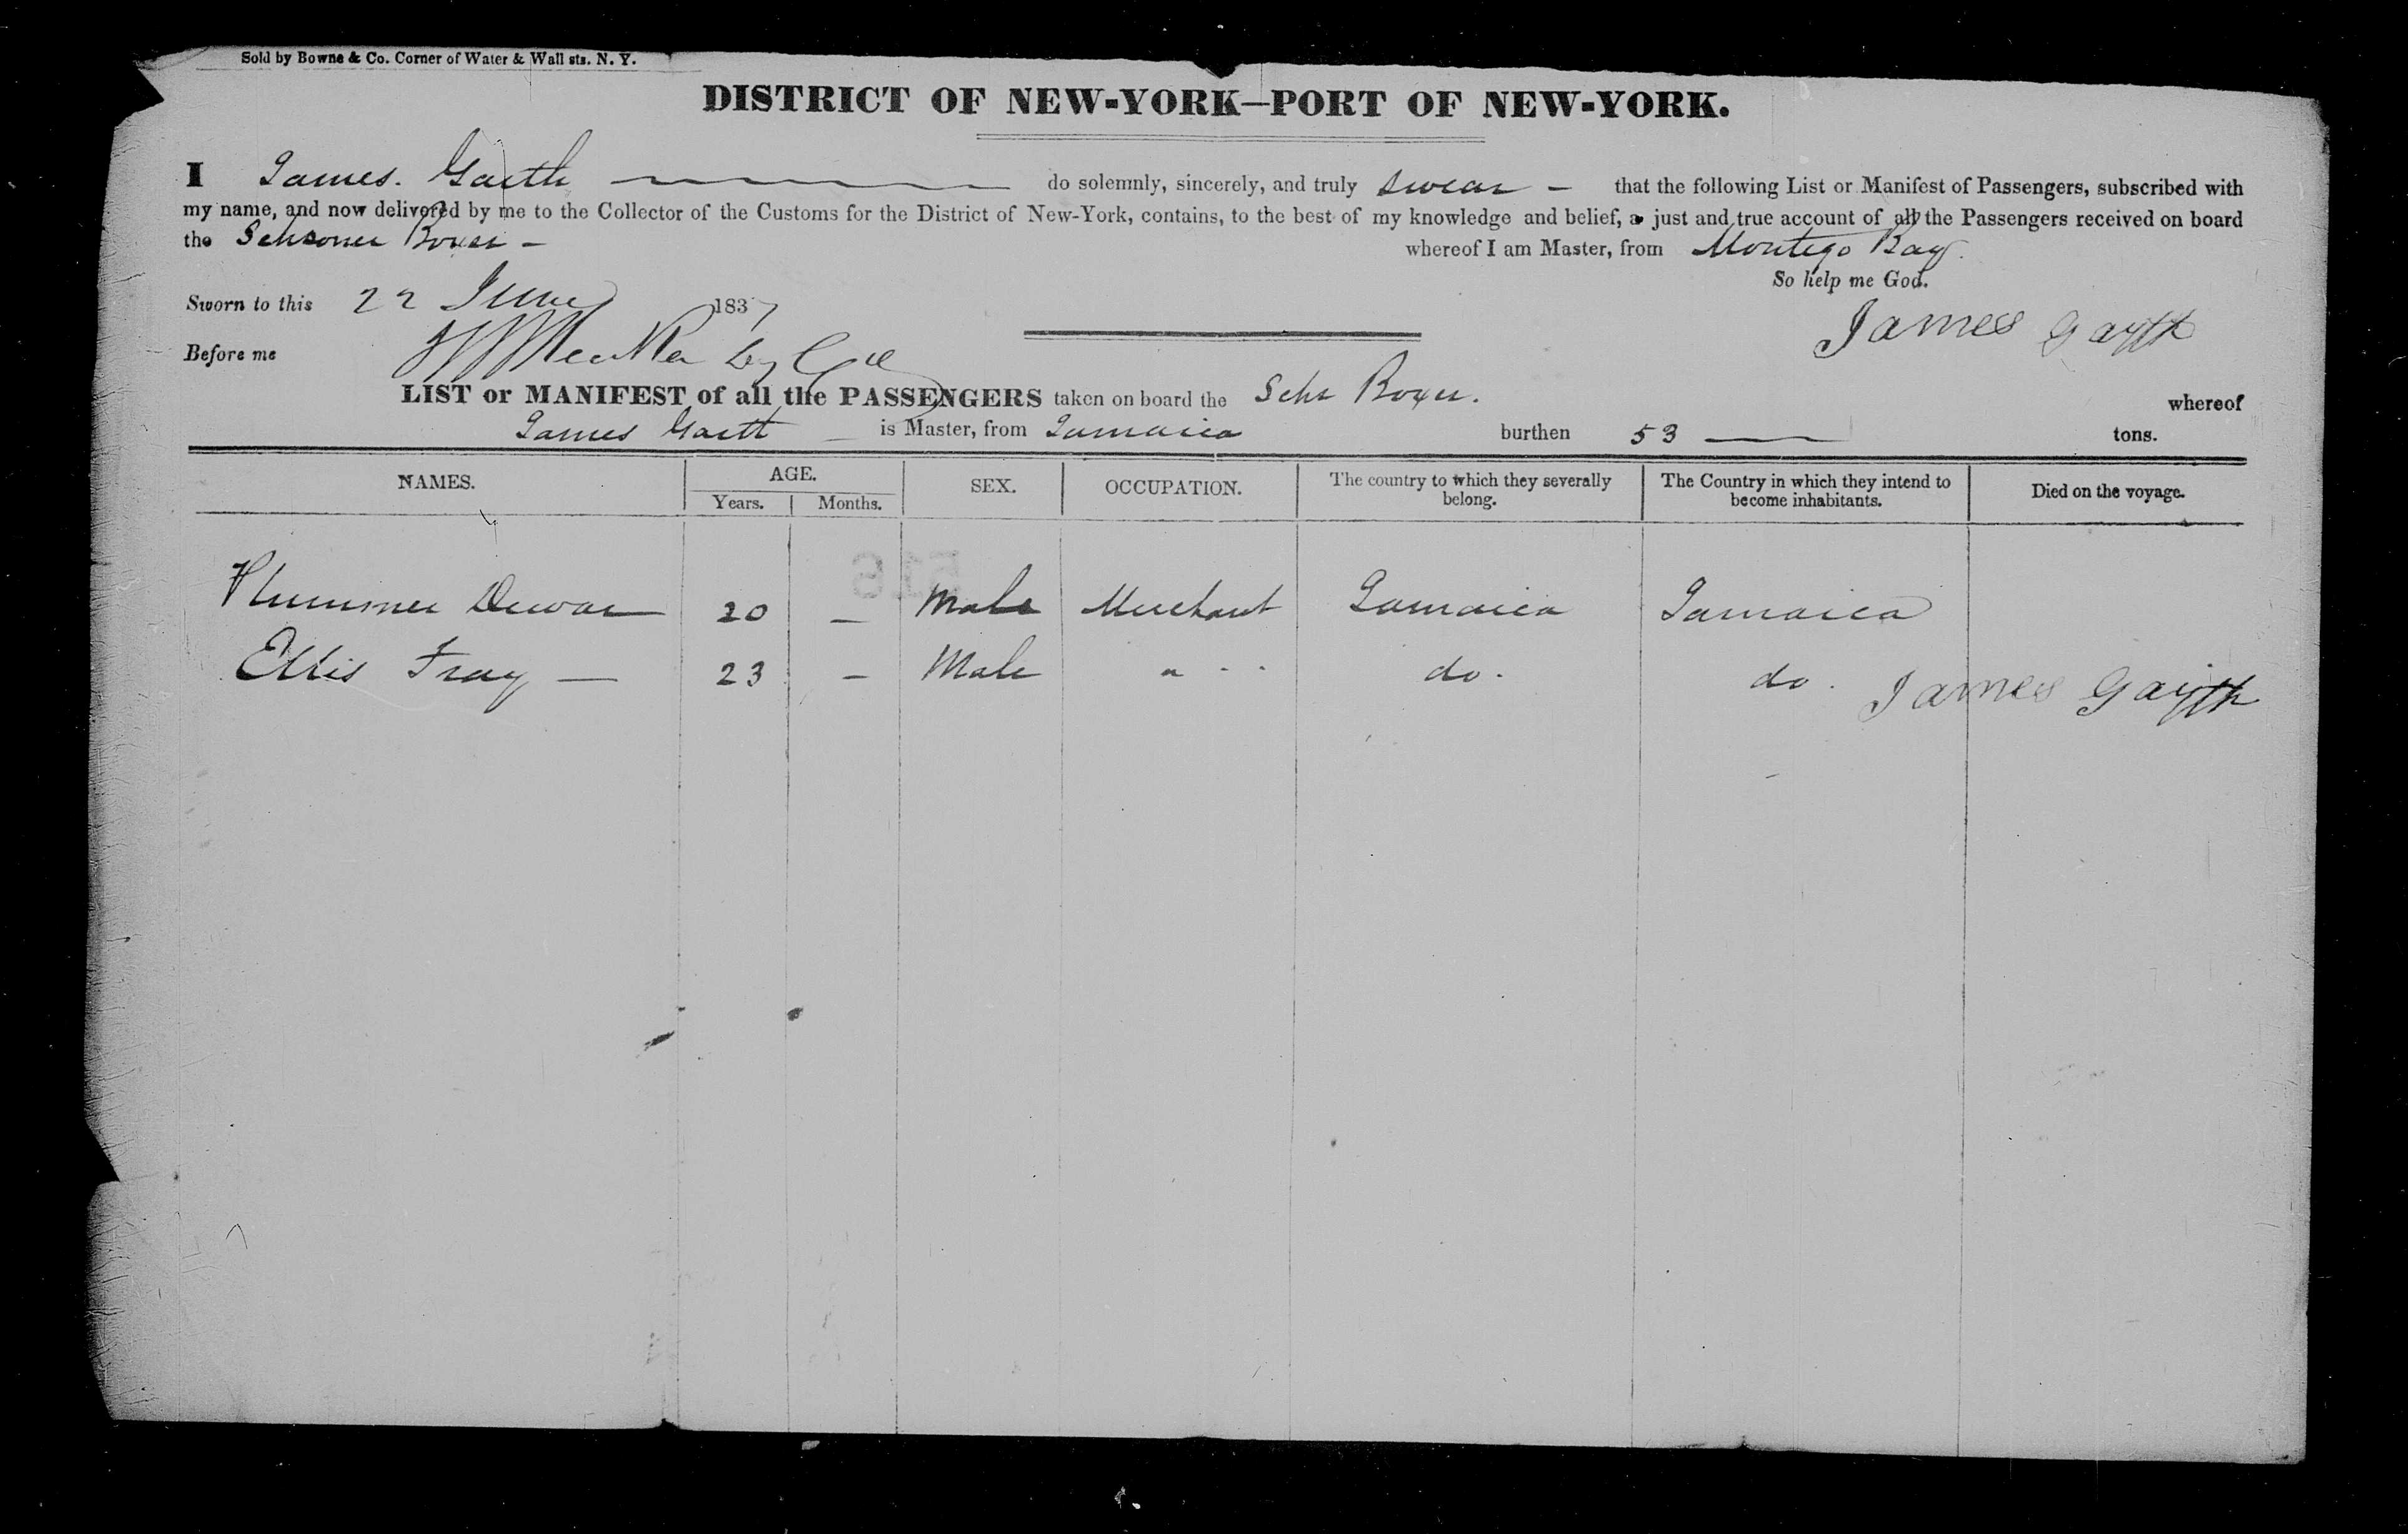 Sold by Bowne & Co. Corner of Water & Wall sts. N. Y.
DISTRICT OF NEW-YORK—PORT OF NEW-YORK.
I James. Garth do solemnly, sincerely, and truly swear – that the following List or Manifest of Passengers, subscribed with
my name, and now delivered by me to the Collector of the Customs for the District of New-York, contains, to the best of my knowledge and belief, a just and true account of all the Passengers received on board
the Schooner Boxer – whereof I am Master, from Montego Bay.
So help me God.
Sworn to this 22 June 1837
James
Before me
LIST or MANIFEST of all the PASSENGERS taken on board the Schr Boxer. whereof
James is Master, from Jamaica burthen 53 — tons.
NAMES. AGE. SEX. OCCUPATION. The country to which they severally belong. The Country in which they intend to become inhabitants. Died on the voyage.
Years. Months.
516
Plummer Dewar 20 – Male Merchant Jamaica Jamaica
Ellis Fray — 23 – Male " - - do. do.
James